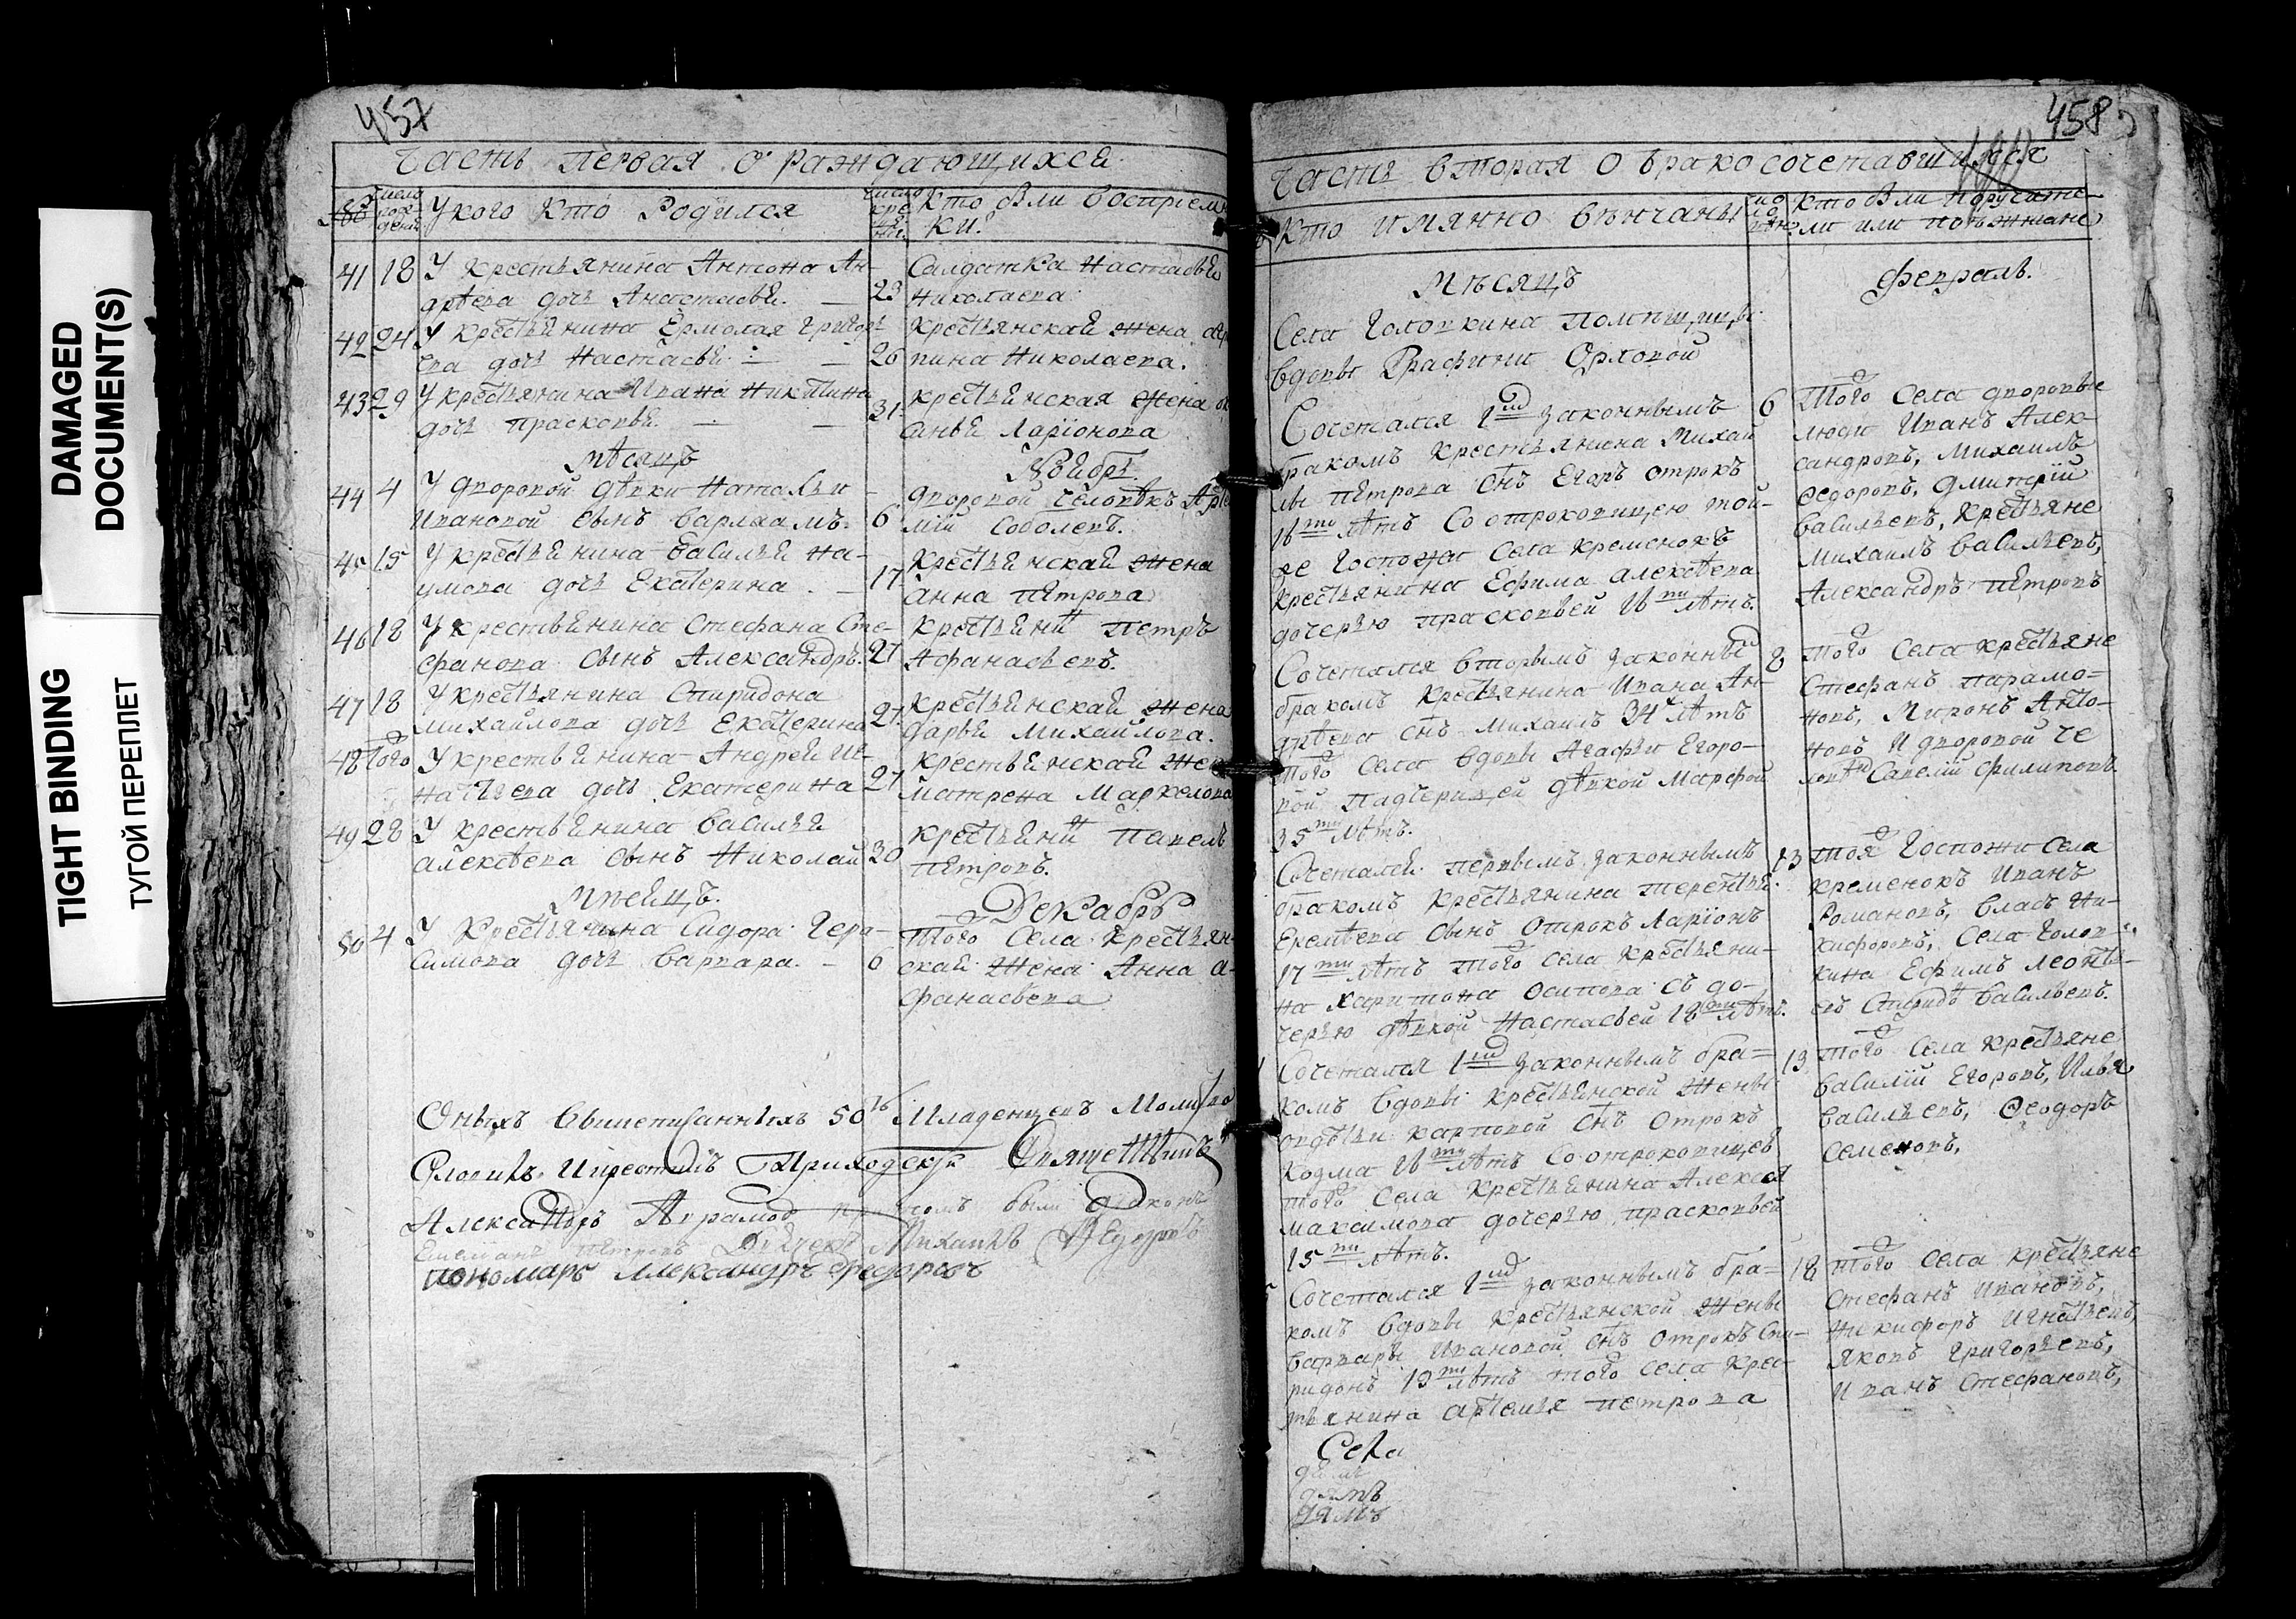 DAMAGED
DOCUMENT(S)
TIGHT BINDING
ТУГОЙ ПЕРЕПЛЕТ
457
Часть первая о раждающихся
У кого кто родился
Кто были восприемни
ки.
41 18 У крестьянина Антона Ан-
дрѣева дочь Анастасья.
23 Салдатка Настасья
Николаева.
42 24 У крестьянина Ермолая Григорь
ева дочь Настасья
26 Крестьянская жена
Николаева.
43 29 У крестьянина Ивана Никитина
дочь Праскопья.
31 Крестьянская жена
Ларiонова
Мѣсяцъ Ноябрь
44 4 У дворовой дѣвки Натальи
Ивановой сынъ Варлаамъ.
6 Дворовой человѣкъ
Соболевъ.
45 15 У крестьянина Василья На-
умова дочь Екатерина.
17 Крестьянская жена
Анна Петрова
46 18 У крестьянина Стефана Сте-
фанова сынъ Александръ.
21 Крестьянинъ Петръ
Афанасьевъ.
47 18 У крестьянина Спиридона
Михайлова дочь Екатерина
21 Крестьянская жена
Дарья Михайлова.
48 того У крестьянина Андрея Иг-
натьева дочь Екатерина
21 Крестьянская жена
Матрена Маркелова
49 28 У крестьянина Василья
Алексѣева сынъ Николай
30 Крестьянинъ Павелъ
Петровъ.
Мѣсяцъ. Декабрь
50 4 У крестьянина Сидора Гера-
симова дочь Варвара.
6 Того села крестьян-
ская жена Анна А-
фанасьева
Оныхъ вышеписанныхъ 50 младенцевъ молитво
словилъ и крестилъ приходской священникъ
Александръ Аврамов при томъ были диаконъ
Петровъ дьячекъ Михаилъ Федоровъ
пономарь Александръ Федоровъ
458
Часть вторая о бракосочетавшихся
Кто имянно вѣнчаны
Кто были поручите-
ли или поѣжжане
Мѣсяцъ Февраль.
Села Головкина помѣщицы
вдовы Графини Орловой
Сочетался 1мъ законнымъ
бракомъ крестьянина Михай
лы Петрова снъ Егоръ отрокъ
16ти лѣтъ со отроковицею той-
же Госпожи села Кременокъ
крестьянина Ефима Алексѣева
дочерью Праскопьей 16ти лѣтъ.
6 Того села дворовые
люди Иванъ Алек-
сандровъ, Михаилъ
Федоровъ, Дмитрiй
Васильевъ, крестьяне
Михаилъ Васильевъ,
Александръ Петровъ
Сочетался вторымъ законны
бракомъ крестьянина Ивана Ан-
дрѣева снъ Михаилъ 34 лѣтъ
того села вдовы Агафьи Егоро-
вой падчерицей дѣвкой Марфой
35ти лѣтъ.
8 Того села крестьяне
Стефанъ Парамо-
новъ, Миронъ Анто-
новъ и дворовой че
ловѣкъ Савелiй Филиповъ.
Сочетался первымъ законнымъ
бракомъ крестьянина Терентья
Еремѣева сынъ отрокъ Ларiонъ
17ти лѣтъ того села крестьяни-
на Харитона Осипова съ до-
черью дѣвкой Настасьей 18ти лѣтъ.
13 Тоя Госпожи села
Кременокъ Иванъ
Романовъ, Власъ Ни-
кифоровъ, села Голов-
кина Ефимъ Леонтье-
въ Спиридо Васильевъ.
Сочетался 1мъ законнымъ бра-
комъ вдовы крестьянской жены
Авдотьи Карповой снъ отрокъ
Козма 16ти лѣтъ со отроковицей
того села крестьянина Алексея
Максимова дочерью Праскопьей
15ти лѣтъ.
13 Того села крестьяне
Василiй Егоровъ, Илья
Васильевъ, Феодоръ
Семеновъ,
Сочетался 1мъ законнымъ бра-
комъ вдовы крестьянской жены
Варвары Ивановой снъ отрокъ Спи-
ридонъ 19ти лѣтъ того села крес-
тьянина Артемья Петрова
18 Того села крестьяне
Стефанъ Ивановъ,
Никифоръ Игнатьевъ,
Яковъ Григорьевъ,
Иванъ Стефановъ,
Села